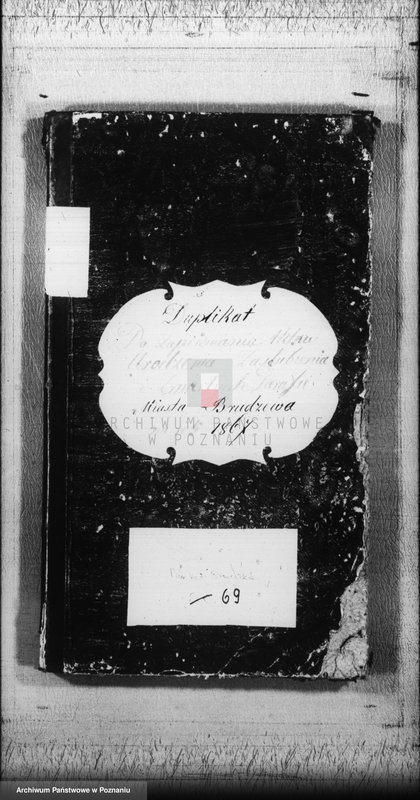 Duplikat
Do zapisywania Aktów
Urodzenia Zaślubienia
i Parafii
Miasta Brudzewa
186
ARCHIWUM PAŃSTWOWE
W POZNANIU
69
Archiwum Państwowe w Poznaniu